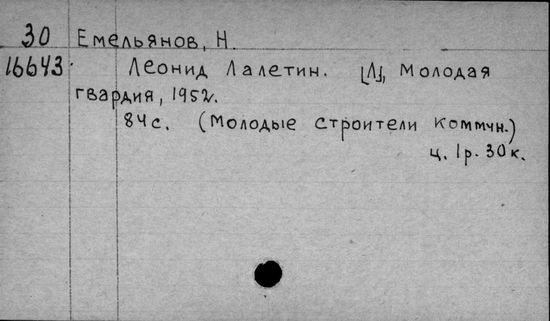 30 Емельянов, Н.
16643 Леонид Лалетин. [Л], Молодая
гвардия, 1952.
84с. (Молодые строители коммун.)
ц. 1р. 30к.